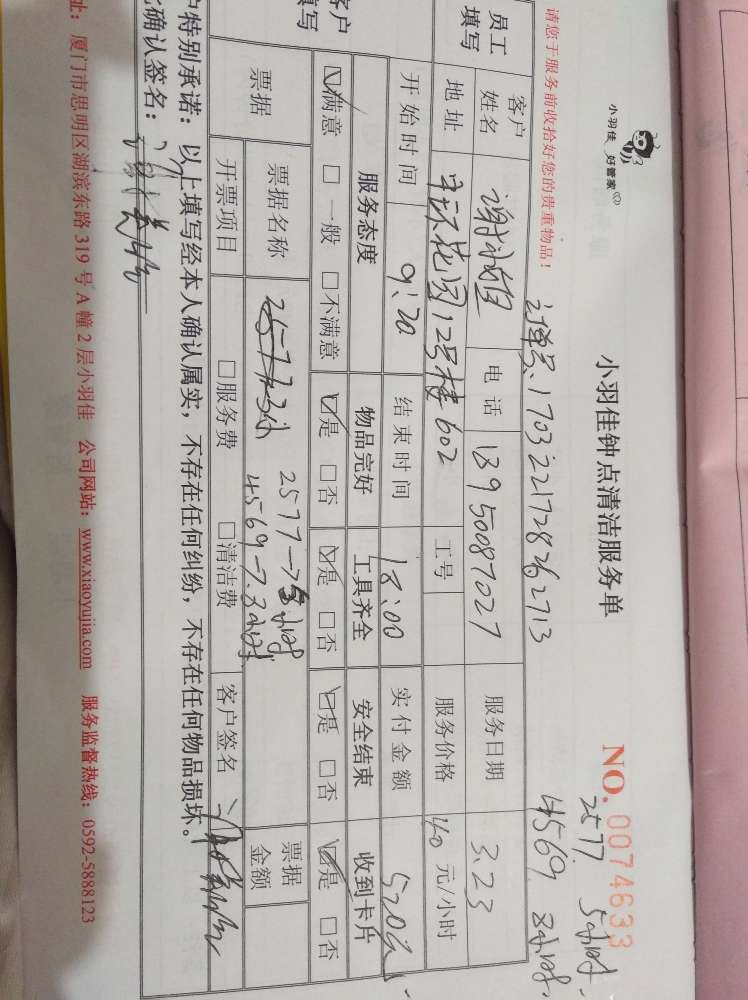 小羽佳 好管家
小羽佳钟点清洁服务单
NO. 0074633
2577 5小时
4569 8小时
请您于服务前收拾好您的贵重物品!
订单号、1703221728262713
员工填写
客户姓名 谢 电话 13950087027 服务日期 3.23
地址 花园12号楼602 工号 服务价格 40 元/小时
开始时间 9:20 结束时间 18:00 实付金额 520元
客户填写
服务态度 物品完好 工具齐全 安全结束 收到卡片
☑满意 □一般 □不满意 ☑是 □否 ☑是 □否 ☑是 □否 ☑是 □否
票据 票据名称 2577 小时 票据金额
4569 小时
开票项目 □服务费 □清洁费 客户签名
户特别承诺:以上填写经本人确认属实,不存在任何纠纷,不存在任何物品损坏。
确认签名:
址:厦门市思明区湖滨东路 319 号 A 幢 2 层小羽佳 公司网站:www.xiaoyujia.com 服务监督热线:0592-5888123